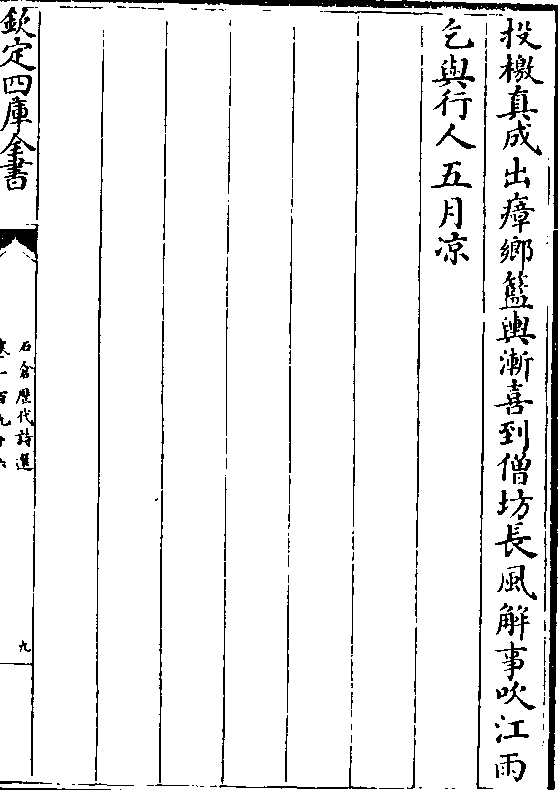 投檄真成出瘴鄉籃輿漸喜到僧坊長風解事吹江雨
乞與行人五月凉
欽定四庫全書
石倉歷代詩選
卷一百九十六
九